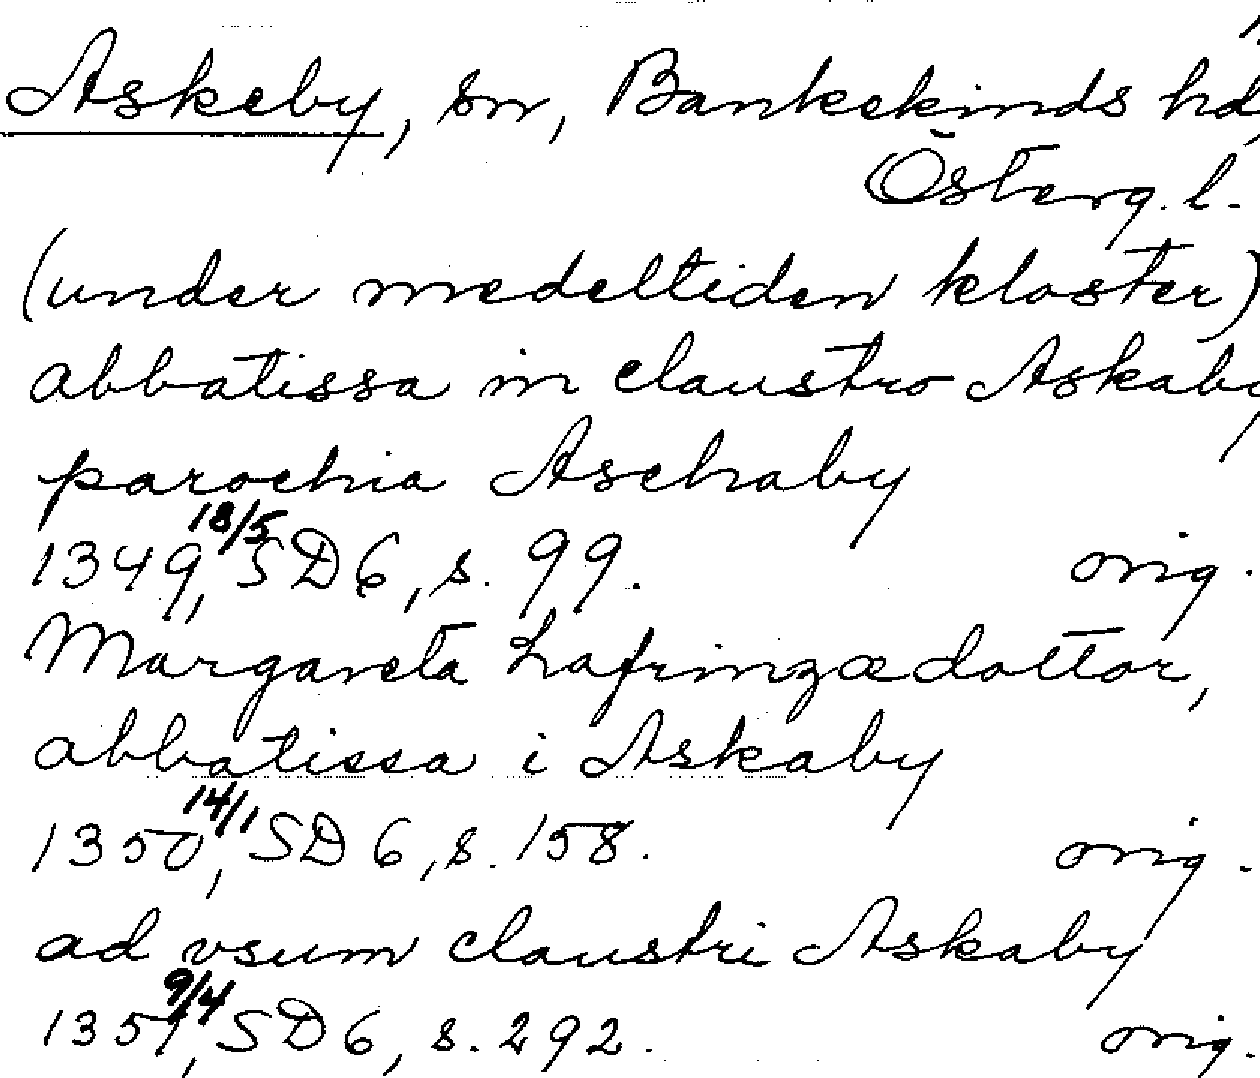 Askeby, sn, Bankekinds hd,
Österg. l.
(under medeltiden kloster)
abbatissa in claustro Askaby
parochia Aschaby
1349 18/5, SD 6, s. 99. orig.
Margareta Hafrinzædottor,
abbatissa i Askaby
1350 14/1, SD 6, s. 158. orig.
ad vsum claustri Askaby
1351 9/4, SD 6, s. 292. orig.